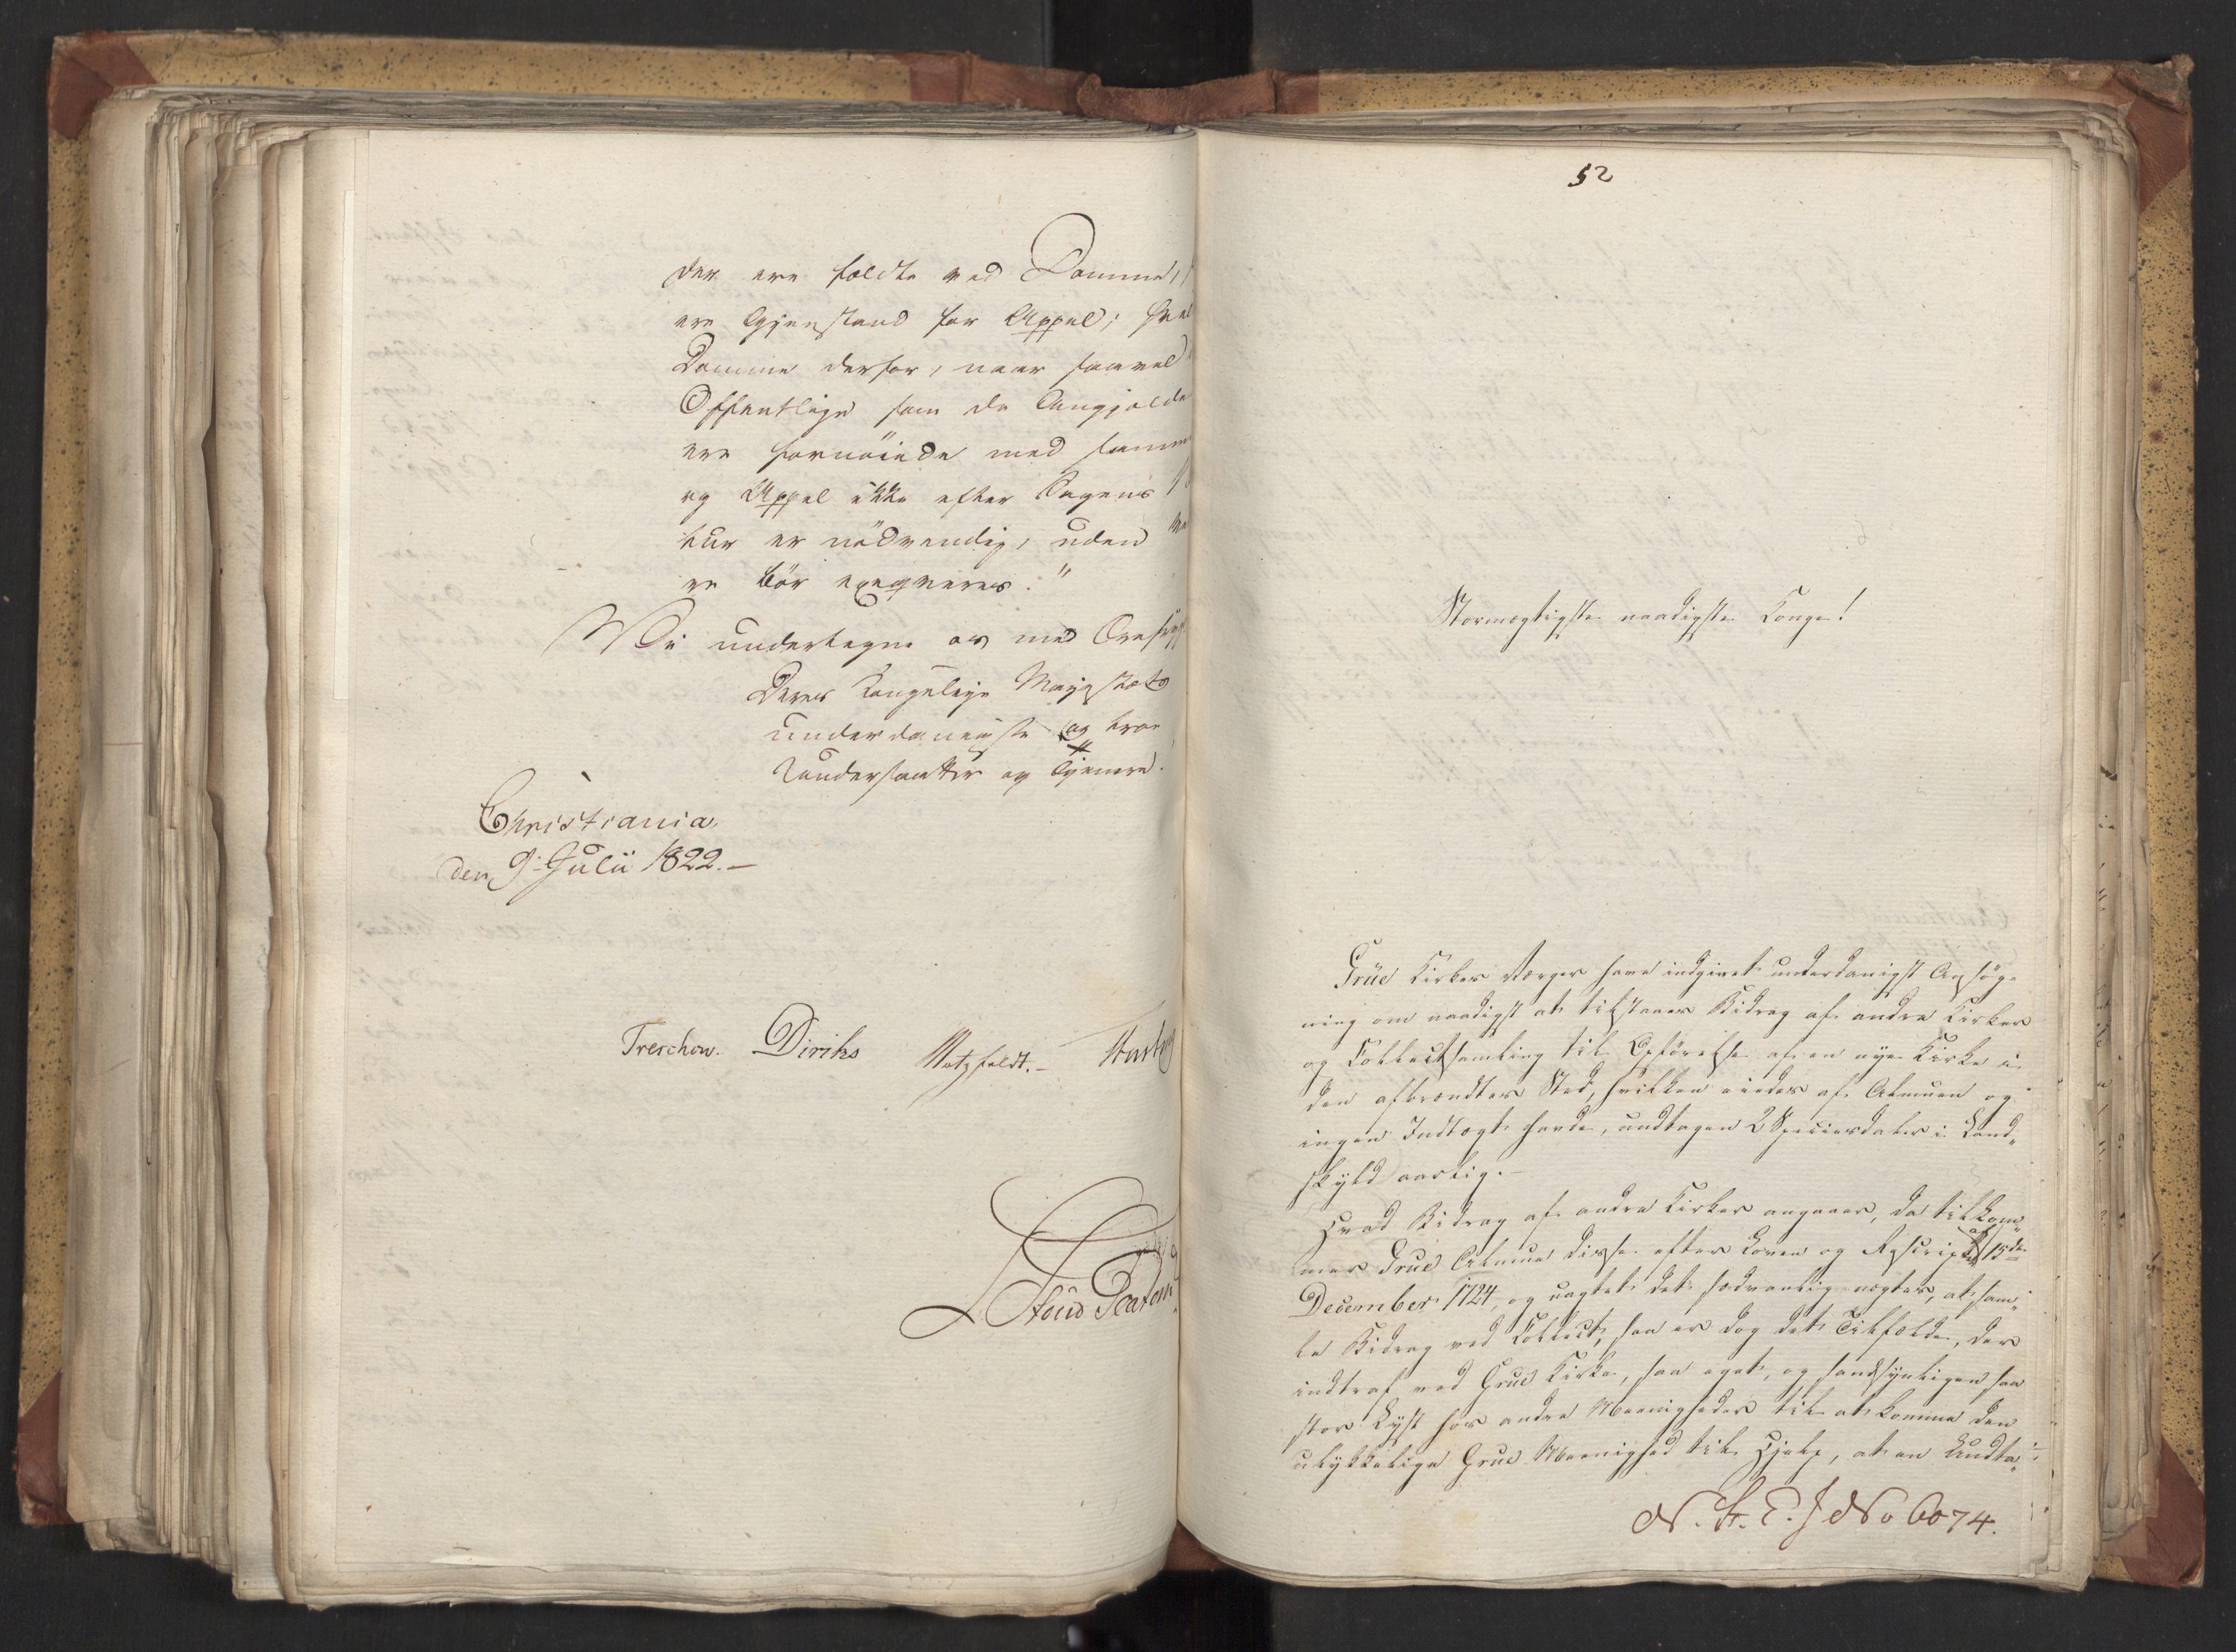 der ere fældte ved Domme,
ere Gjenstand for Appel;
Domme derfor, naar saavel
Offentlige som de Angjeldte
ere fornöiede med samme
og Appel ikke efter Sagens
tur er nödvendig, uden
re bör exeqveres."
Vi undertegne os med
Deres Kongelige Majestæts
underdanigste og troe
Undersaatter og Tjenere.
Christiania
den 9. Julii 1822.—
Treschow. Diriks Motzfeldt.—
52
Stormægtigste naadigste Konge!
Grue Kirkes Værger have indgivet underdanigst Ansög-
ning om naadigst at tilstaaes Bidrag af andre Kirker
og Collectsamling til Opförelse af en nye Kirke i
den afbrændtes Sted, hvilken eiedes af Almuen og
ingen Indtægt havde, undtagen 2 Speciesdaler i Land„
skyld aarlig.—
Hvad Bidrag af andre Kirker angaaer, da tilkom„
mer Grue Almue disse efter Loven og Rescript af 15de
December 1724, og uagtet det sædvanlig nægtes, at sam„
le Bidrag ved Collect, saa er dog det Tilfælde, der
indtraf med Grue Kirke, saa eget, og sandsynligen saa
stor Lyst hos andre Meenigheder til at komme den
ulykkelige Grue Meenighed til Hjelp, at en Undta„
N. St. E. J No 6074.